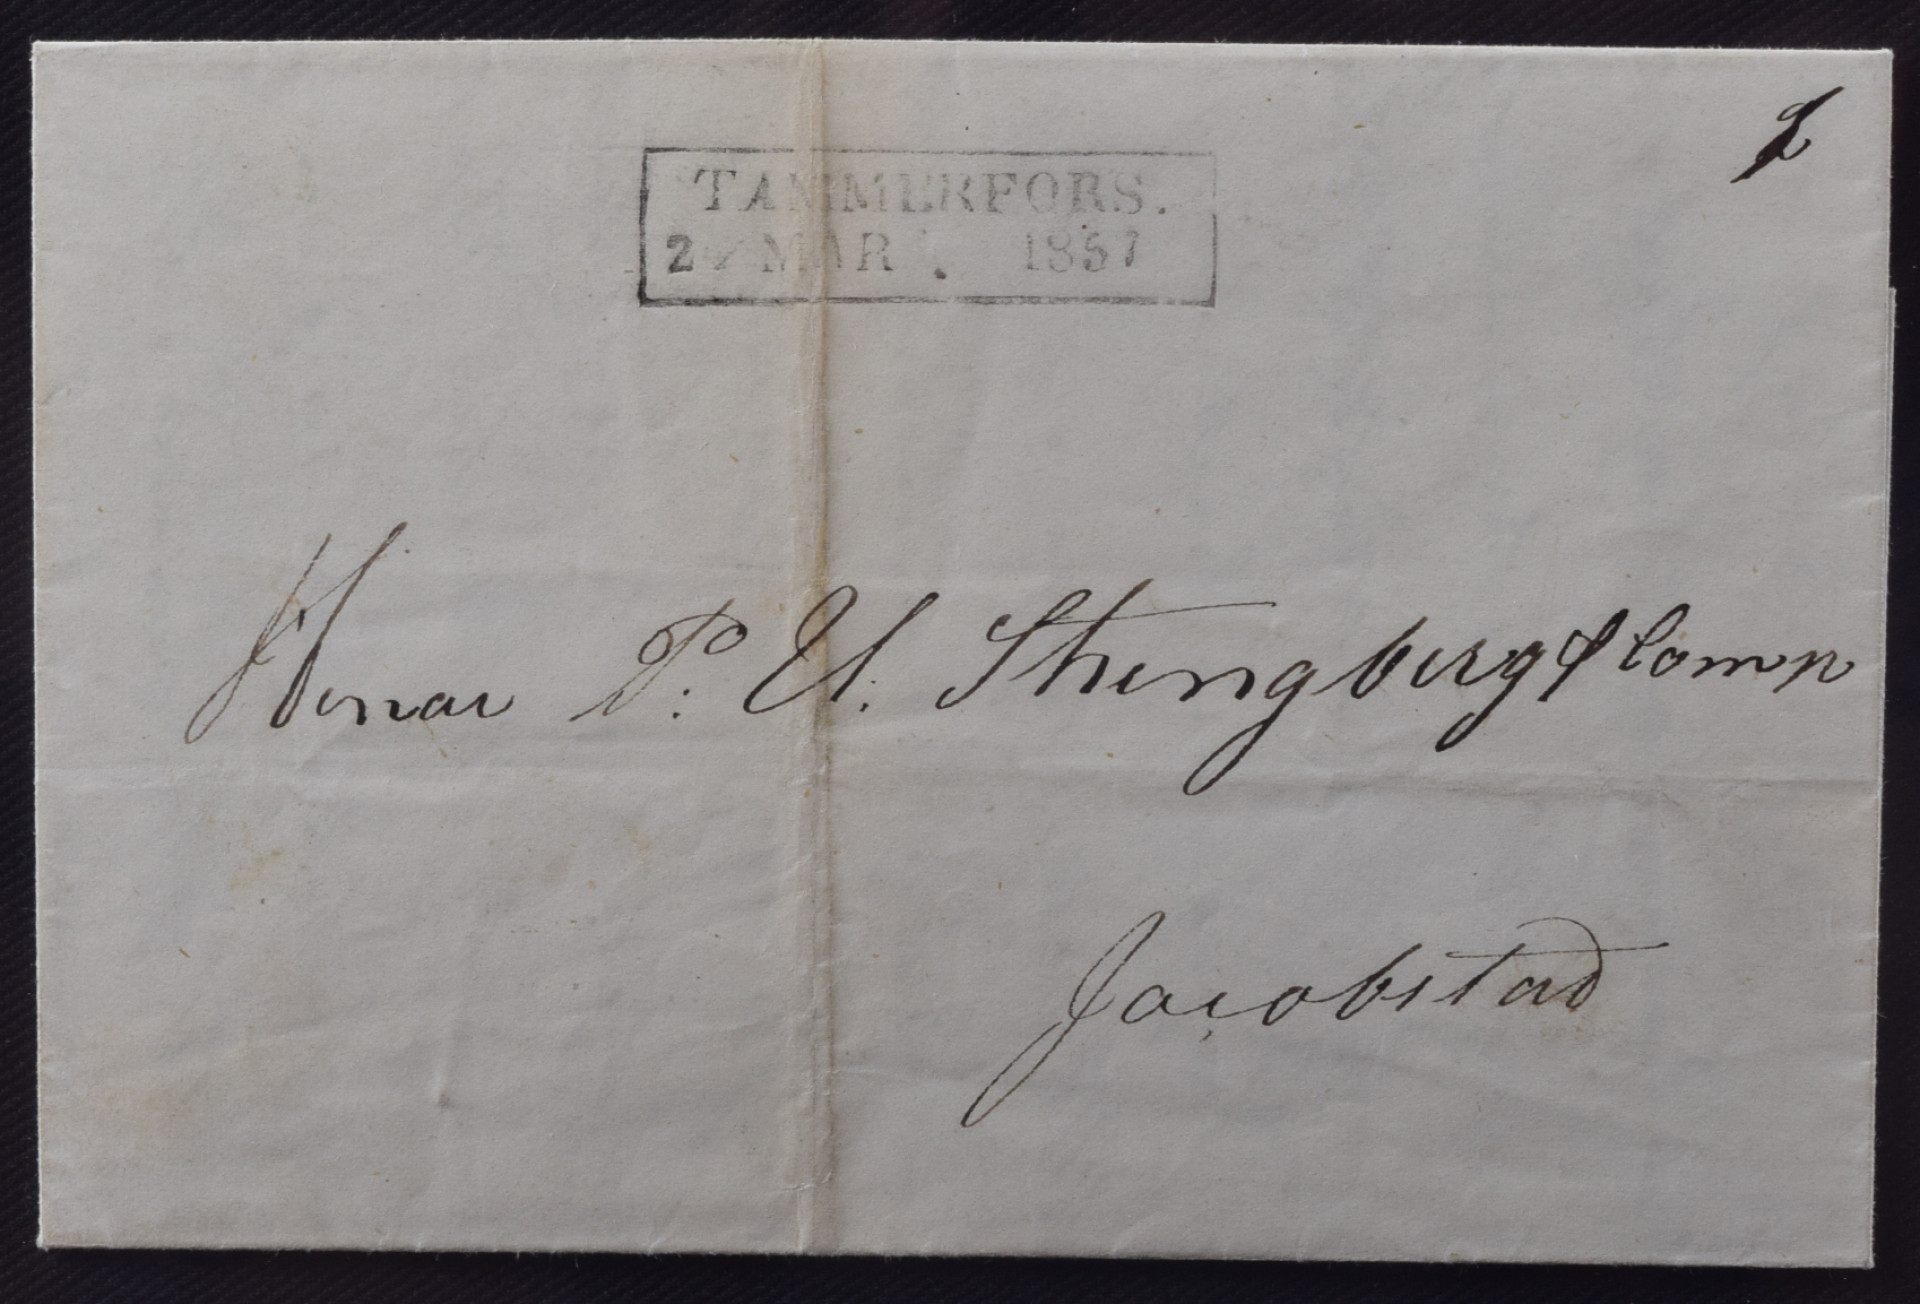 TAMMERFORS.
MAR. 1857
Herrar P. U. Strengberg & Comp
Jacobstad